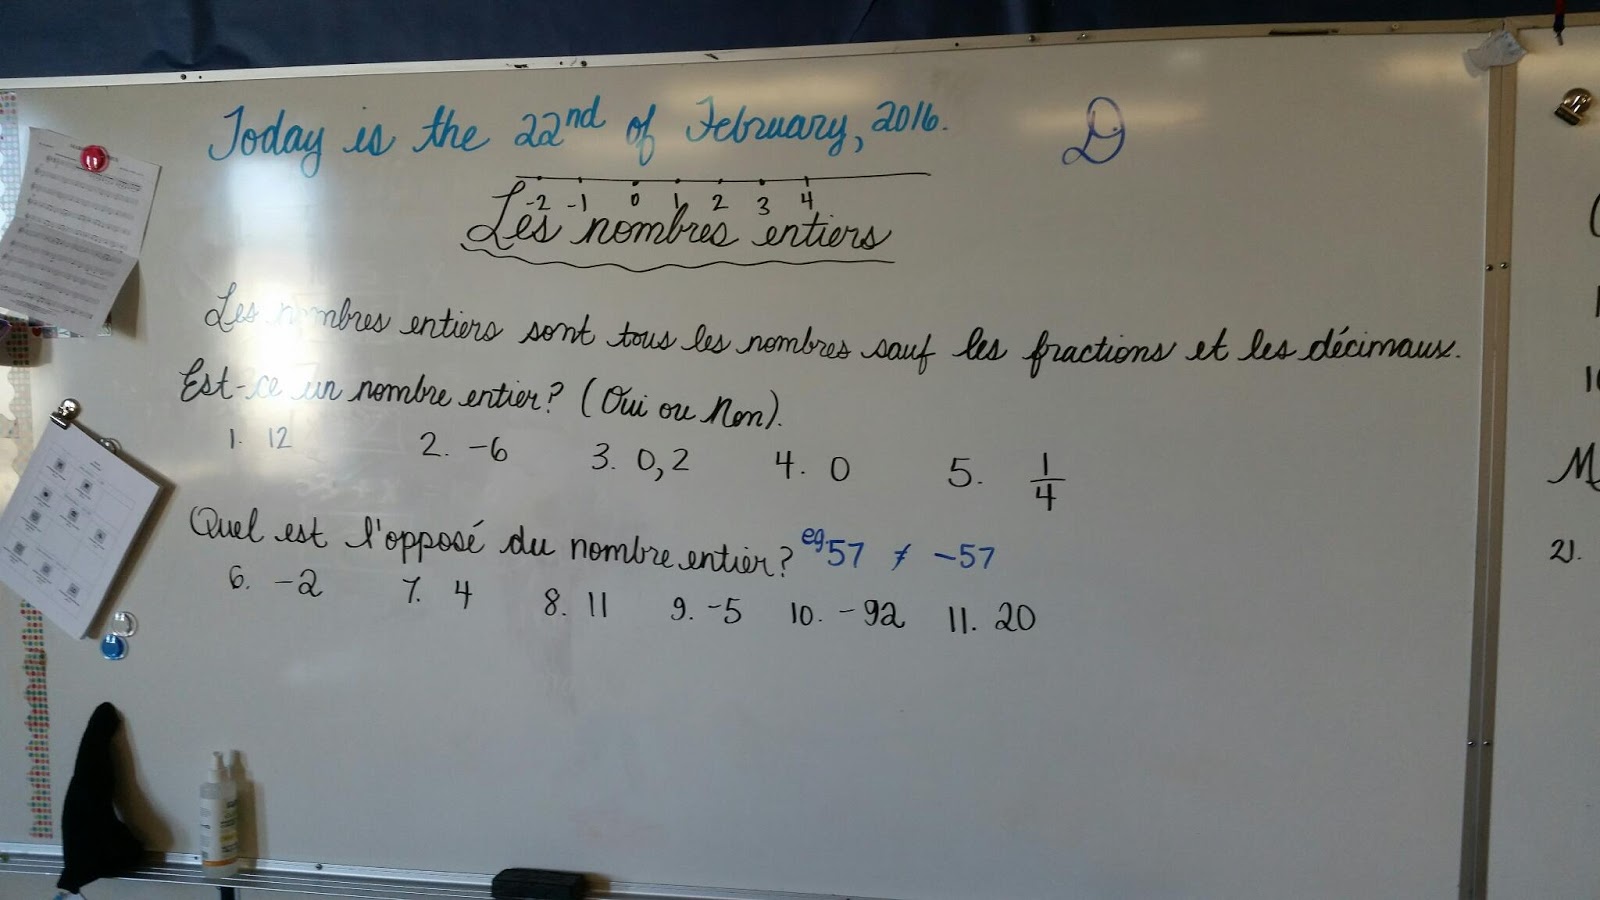 Today is the 22nd of February, 2016.
D
-2 -1 0 1 2 3 4
Les nombres entiers
Les nombres entiers sont tous les nombres sauf les fractions et les décimaux.
Est-ce un nombre entier? (Oui ou Non).
1. 12 2. -6 3. 0,2 4. 0 5. 1/4
Quel est l'opposé du nombre entier? eg. 57 ≠ -57
6. -2 7. 4 8. 11 9. -5 10. -92 11. 20
21.